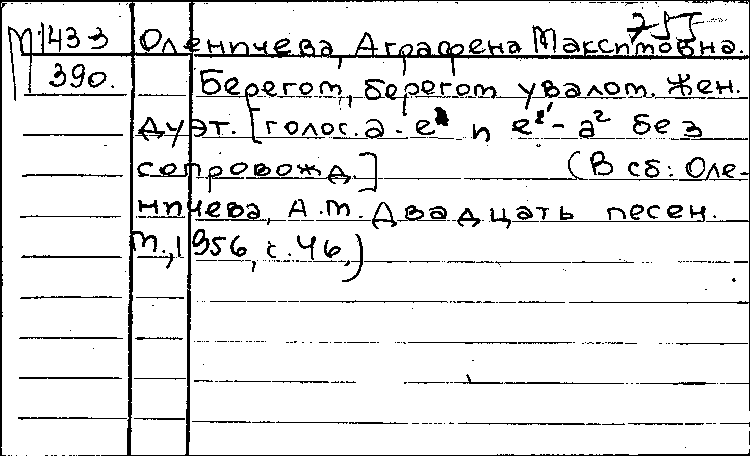 755
М 1433 Оленичева, Аграфена Максимовна.
390. Берегом, берегом увалом. Жен.
дуэт. [голос. a - e² и e² - a² без
сопровожд.] (В сб: Оле-
ничева, А.М. Двадцать песен.
М., 1956, с. 46.)